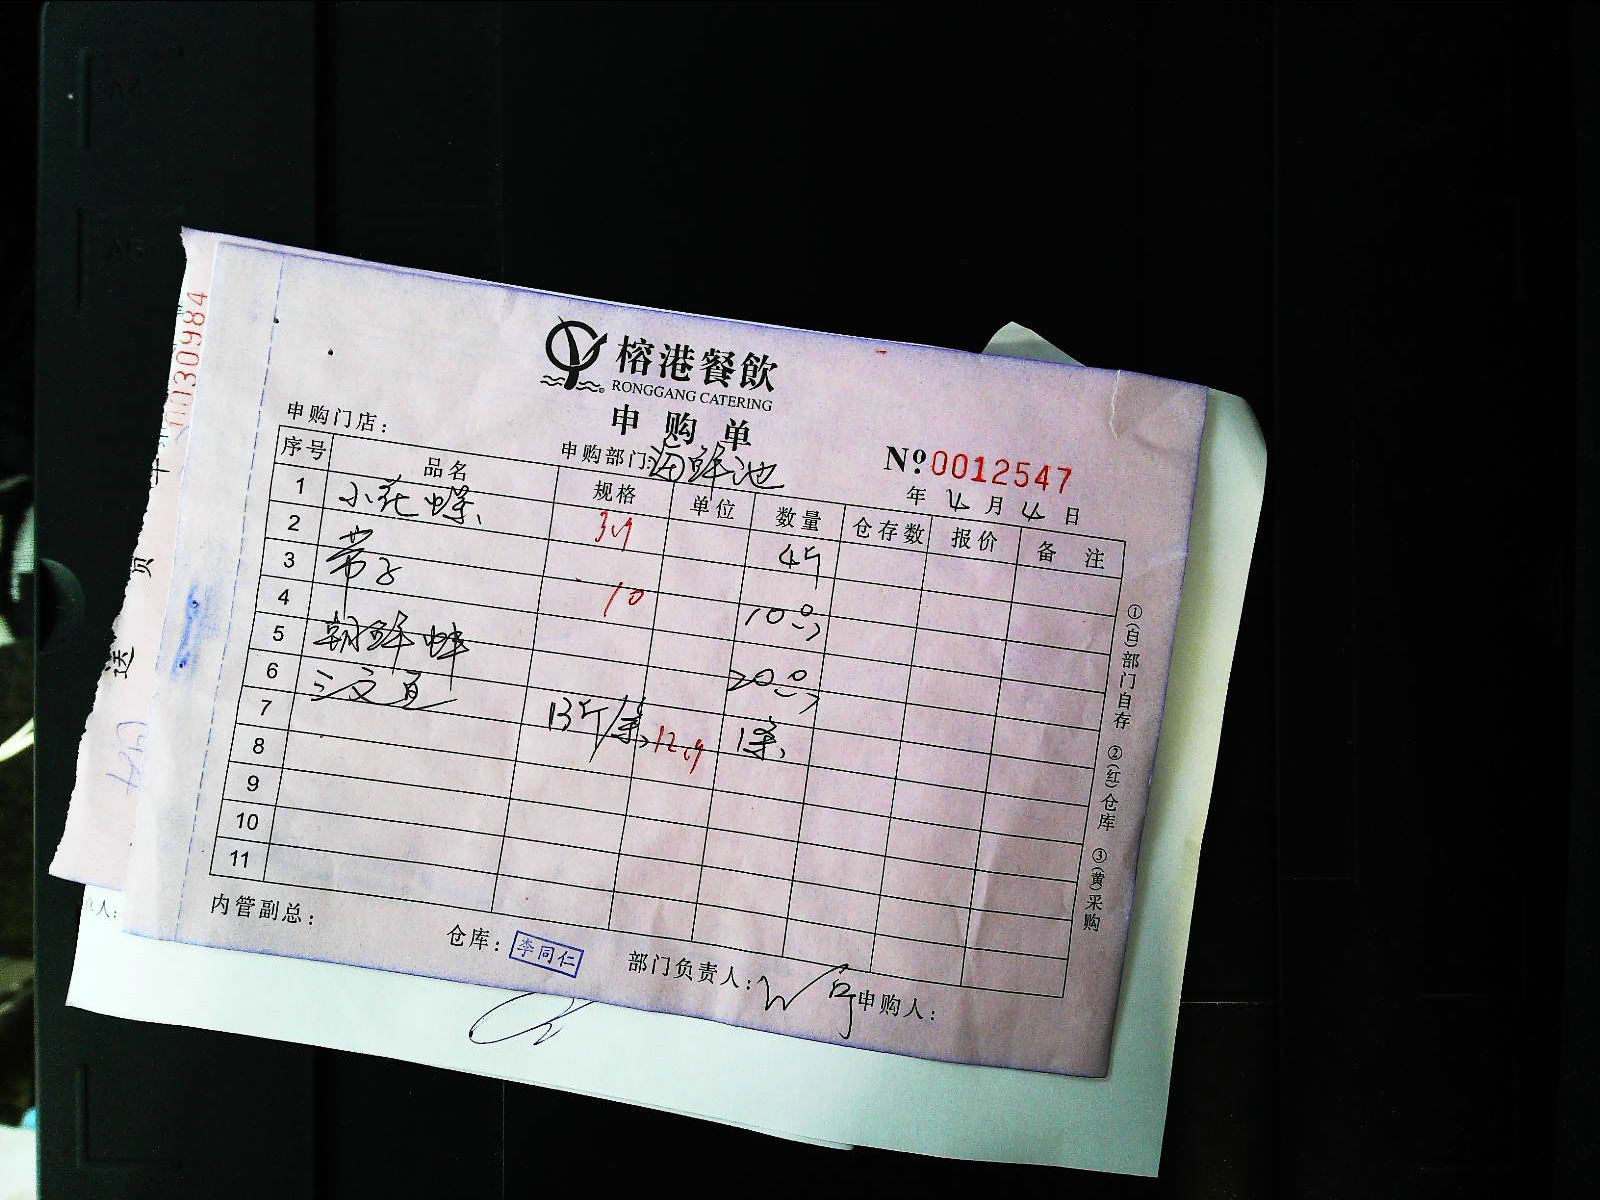 榕港餐飲
RONGGANG CATERING
申购单
申购门店：
申购部门:海鲜池
№0012547
年 4 月 4 日
序号 品名 规格 单位 数量 仓存数 报价 备注
1 小花螺 4斤
2
3 带子 10 10只
4
5 朝鲜蚌 20只
6 三文鱼 13斤/条 1条
7
8
9
10
11
①(白)部门自存 ②(红)仓库 ③(黄)采购
内管副总： 仓库：李同仁 部门负责人： 申购人：
0030984